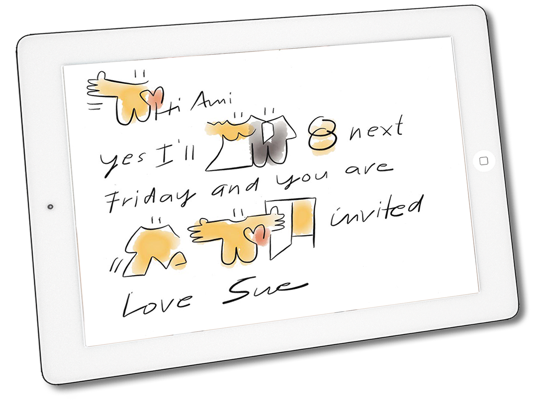 Hi Ami
yes I'll next
Friday and you are
invited
Love Sue